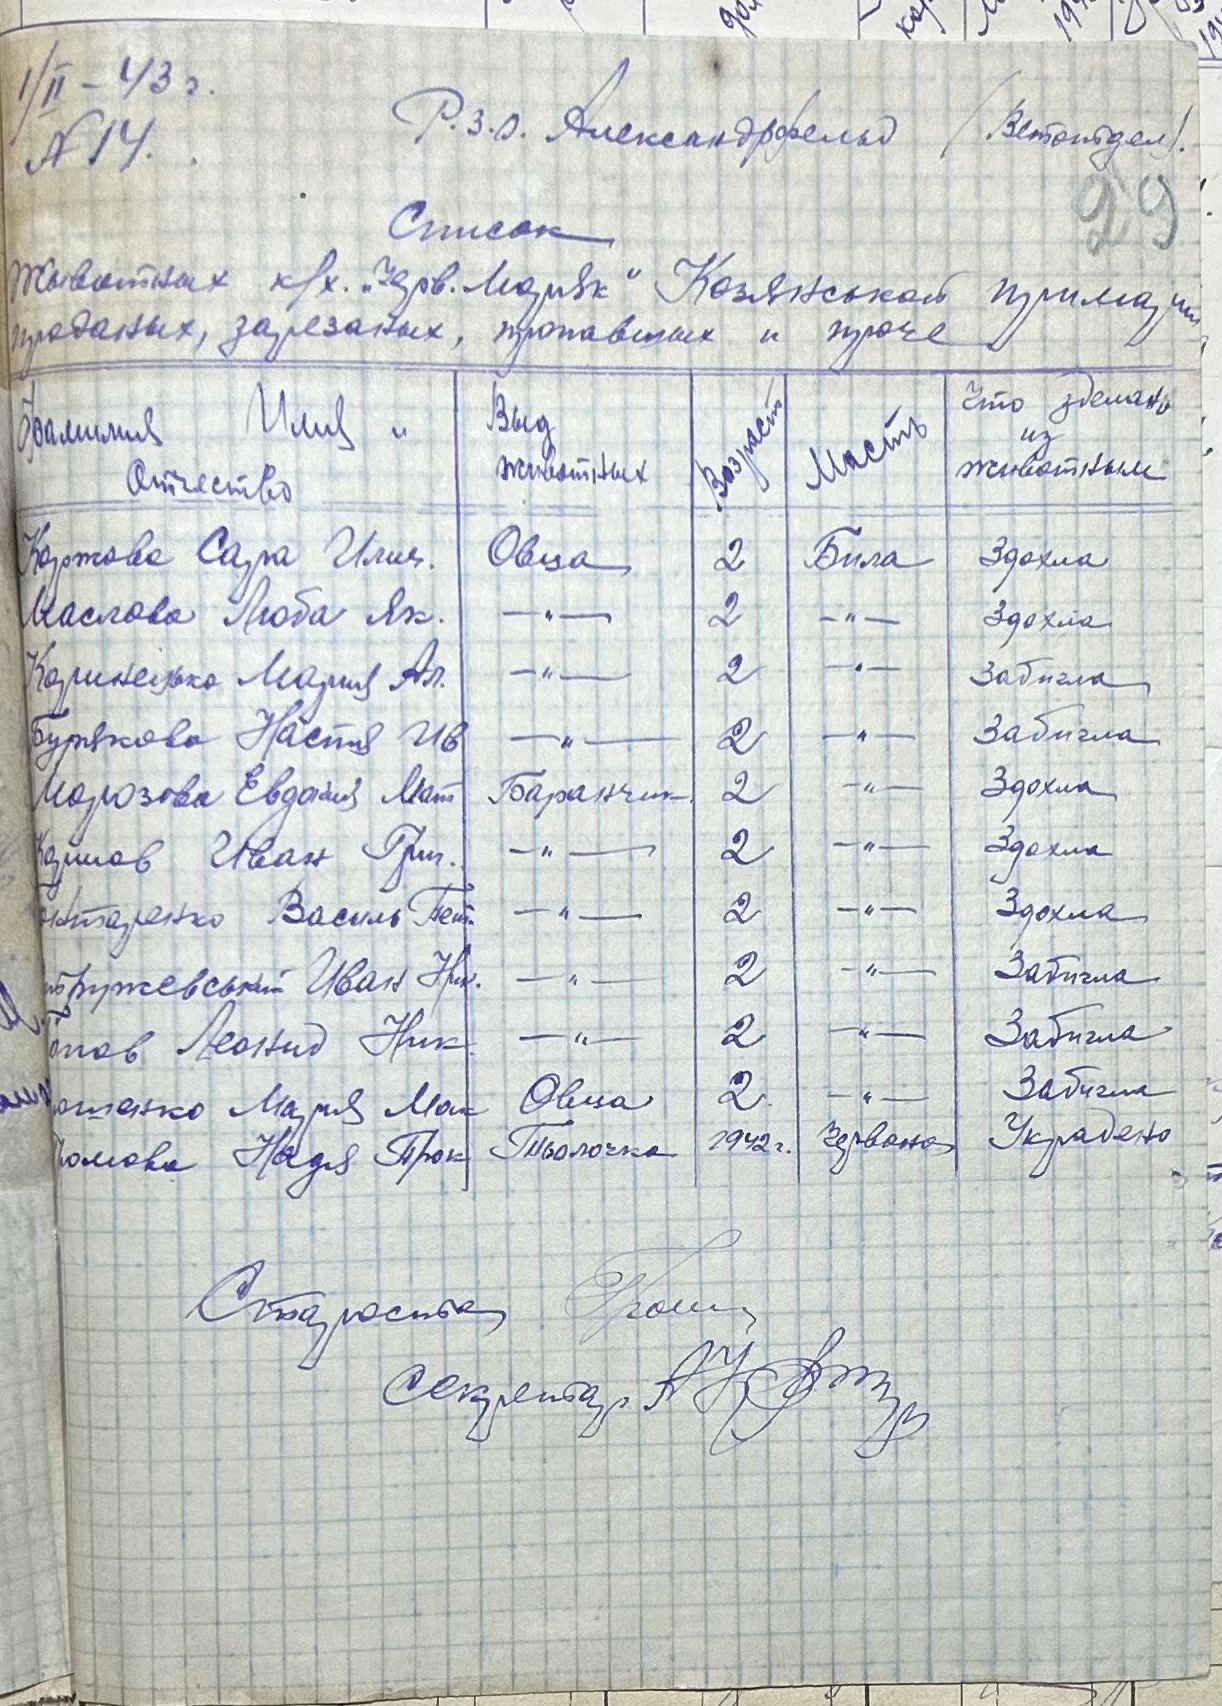 1/II – 43 г.
N 14.
Р.З.О. Александрфельд (Ветотдел).
29
Список
Животных к/х. "Черв. Маряк" Козянськой примарии
проданых, зарезаных, пропавших и проче
Фамилия Имя и Отчество | Выд животных | Возраст | Масть | Что зделано из животным
Коржова Сара Илич. Овца 2 Била Здохла
Маслова Люба Як. –"– 2 –"– Здохла
Мария Ал. –"– 2 –"– Забигла
Бурякова Настя Ив –"– 2 –"– Забигла
Марозова Евдокия Мат Баранчик 2 –"– Здохла
Иван Григ. –"– 2 –"– Здохла
Василь Пет. –"– 2 –"– Здохла
Иван Ник. –"– 2 –"– Забигла
Леонид Ник. –"– 2 –"– Забигла
Мария Мак Овца 2. –"– Забигла
Надя Прок Тьолочка 1942 г. Червона Украдено
Староста
Секретар